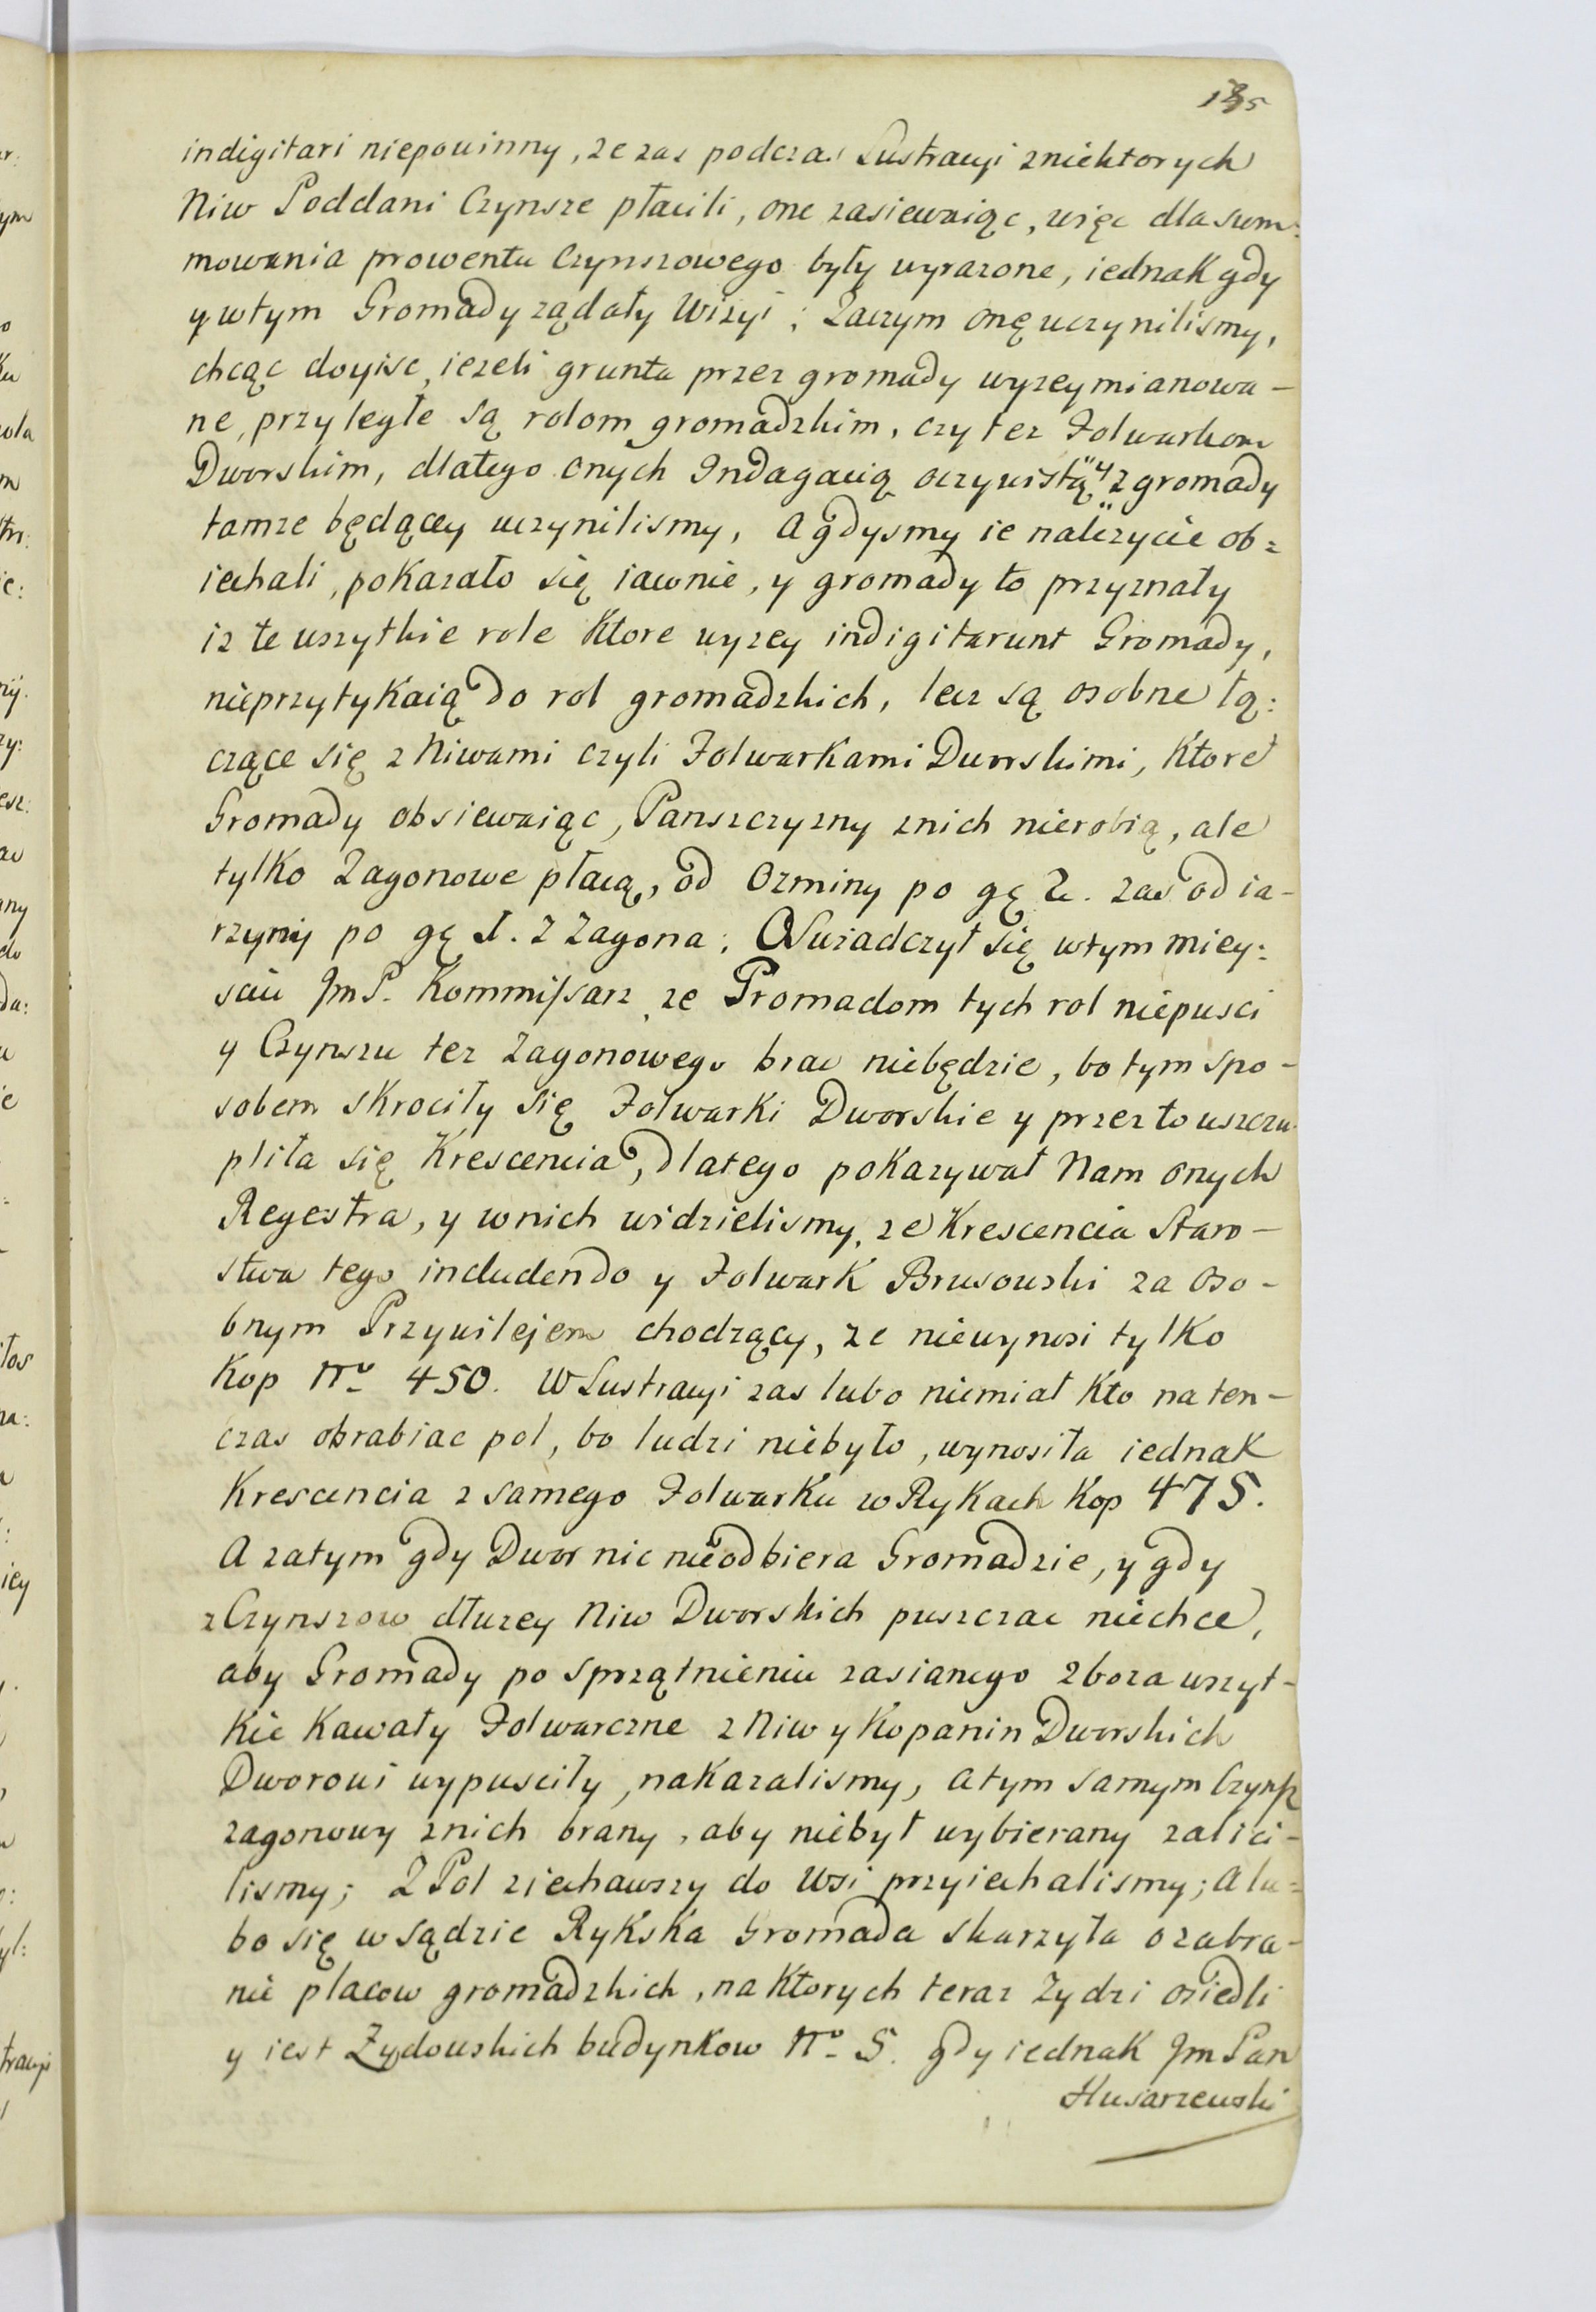 135
indigitari niepowinny, ze zas podczas Lustracyi zniektorych
Niw Poddani Czynsze płacili, one zasiewaiąc, więc dla sum:
mowania prowentu Czynszowego były wyrazone, iednak gdy
y wtym Gromady ządały Wizyi; Zaczym onę uczynilismy,
chcąc doyisc, iezeli grunta przez gromady wyzeymianowa-
ne, przyległe są rolom gromadzkim, czy tez Folwarkom
Dworskim, dlatego onych Indagacią oczywistą y z gromady
tamze będącey uczynilismy, A gdysmy ie nalezycie ob=
iechali, pokazało się iawnie, y gromady to przyznały
iz te wszytkie role Ktore wyzey indigitarunt Gromady,
nieprzytykaią do rol gromadzkich, lecz są osobne łą:
czące się z Niwami czyli Folwarkami Dworskimi, Ktore
Gromady obsiewaiąc, Panszczyzny znich nierobią, ale
tylko Zagonowe płacą, od Ozminy po gę 2. zas od ia-
rzyny po gę 1. z Zagona; Oswiadczył się wtym miey:
scu Jm P. Kommissarz, ze Gromadom tych rol niepusci
y Czynszu tez Zagonowego brac niebędzie, bo tym spo-
sobem skrociły się Folwarki Dworskie y przez to uszczu-
pliła się Krescencia, dlatego pokazywał Nam onych
Regestra, y wnich widzielismy, ze Krescencia Staro-
stwa tego includendo y Folwark Brusowski za oso-
bnym Przywilejem chodzący, ze niewynosi tylko
Kop No 450. W Lustracyi zas lubo niemiał Kto na ten-
czas obrabiac pol, bo ludzi niebyło, wynosiła iednak
Krescencia z samego Folwarku w Rykach Kop 475.
A zatym gdy Dwor nic nieodbiera Gromadzie, y gdy
z Czynszow dłuzey Niw Dworskich puszczac niechce,
aby Gromady po sprzątnieniu zasianego zboza wszyt-
kie Kawały Folwarczne z Niw y Kopanin Dworskich
Dworowi wypusciły, nakazalismy, a tym samym Czynsz
zagonowy znich brany, aby niebył wybierany zalici-
lismy; Z Pol ziechawszy do Wsi przyiechalismy; A lu=
bo się w sądzie Rykska Gromada skarzyła o zabra-
nie placow gromadzkich, na Ktorych teraz Zydzi osiedli
y iest Zydowskich budynkow No 5. gdy iednak Jm Pan
Husarzewski